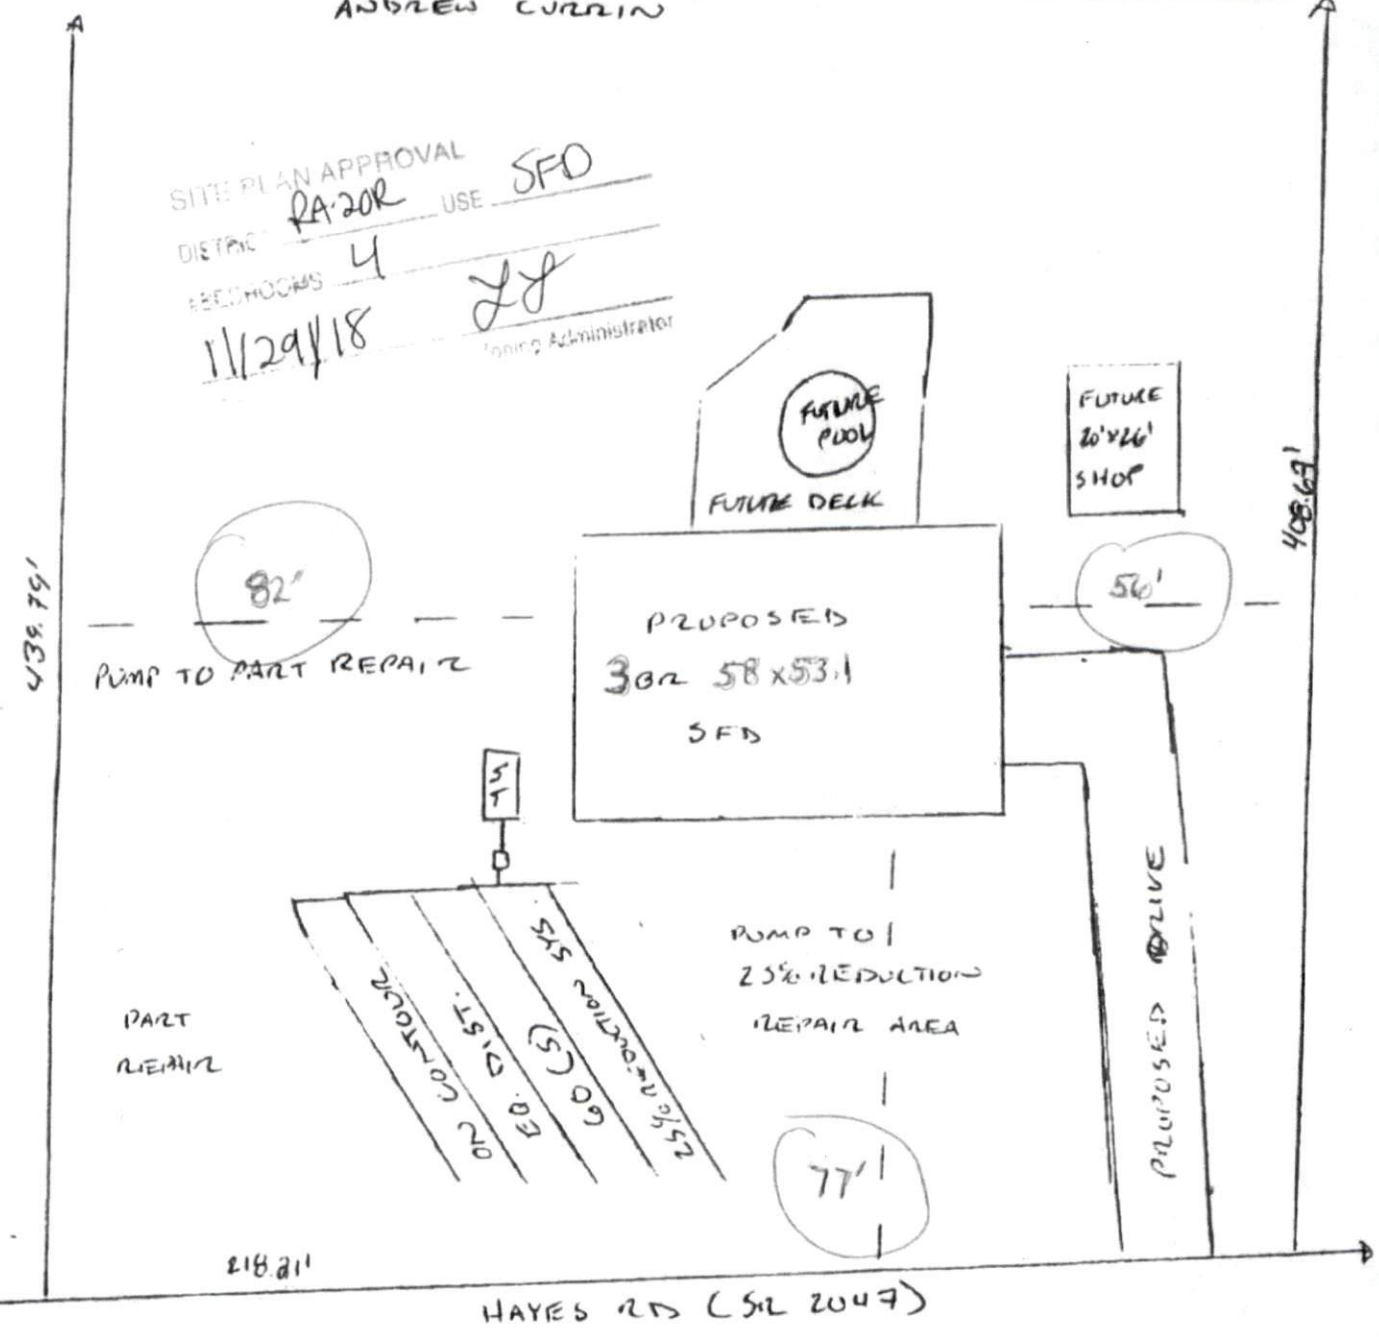 ANDREW CURRIN
SITE PLAN APPROVAL
DISTRIC RA-20R USE SFD
#BEDROOMS 4
11/29/18
Zoning Administrator
FUTURE
POOL
FUTURE DECK
FUTURE
20'x26'
SHOP
408.69'
439.79'
82'
56'
PUMP TO PART REPAIR
PROPOSED
3BR 58x53.1
SFD
ST
D
ON CONTOUR
EQ. DIST.
60 (5)
25% REDUCTION SYS
PART
REPAIR
PUMP TO
25% REDUCTION
REPAIR AREA
PROPOSED DRIVE
77'
218.21'
HAYES RD (SR 2047)